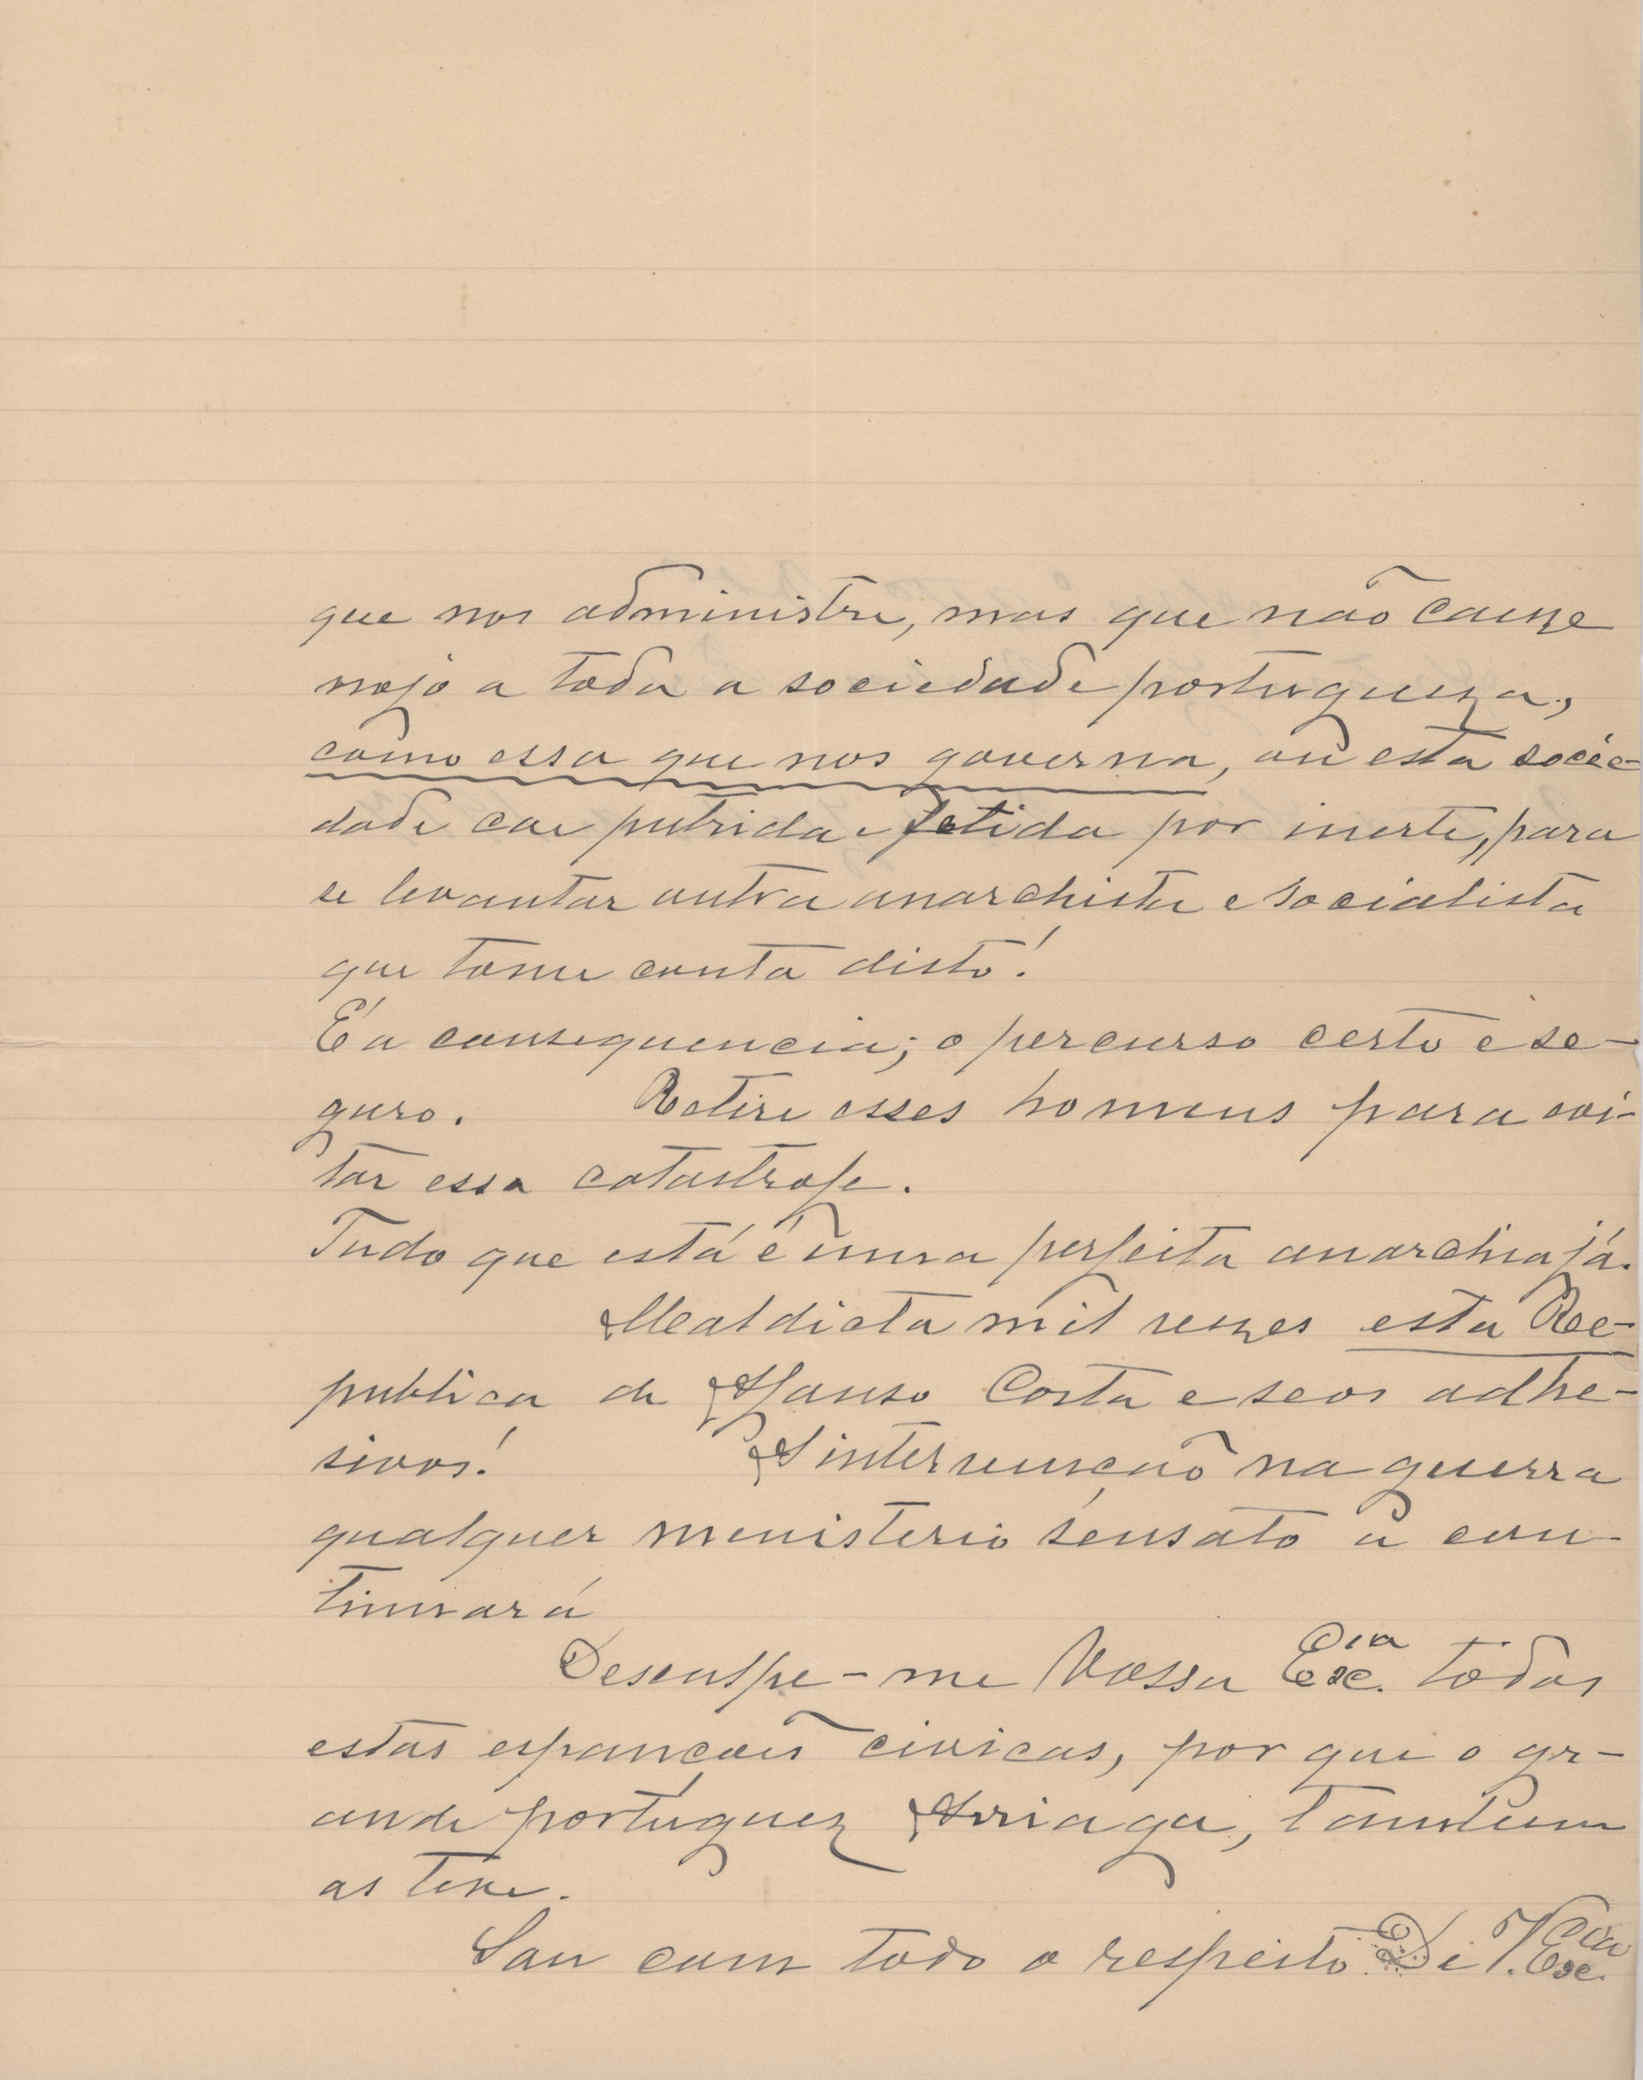 que nos administre, mas que não cauze
nojo a toda a sociedade portugueza,
como essa que nos governa, ou esta socie-
dade cae putrida e fetida por inerte, para
se levantar outra anarchista e socialista
que tome conta disto!
É a consequencia; o percurso certo e se-
guro. Retire esses homens para evi-
tar essa catastrofe.
Tudo que está é uma perfeita anarchia já.
Maldicta mil vezes esta Re-
publica de Afonso Costa e seos adhe-
sivos! A intervenção na guerra
qualquer menisterio sensato a con-
tinuará
Desculpe-me Vossa Exc.cia todas
estas espancões civicas, por que o gr-
ande portuguez Arriaga, tambem
as teve.
Sou com todo o respeito De V. Exc.cia